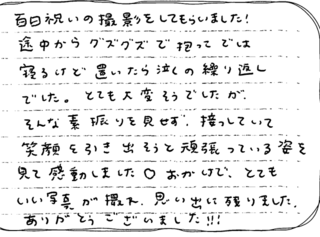 百日祝いの撮影をしてもらいました!
途中からグズグズで抱ってでは
寝るけど置いたら泣くの繰り返し
でした。とても大変そうでしたが、
そんな素振りを見せず、接っしていて
笑顔を引き出そうと頑張っている姿を
見て感動しました○おかげで、とても
いい写真が撮れ、思い出に残りました。
ありがとうございました!!!